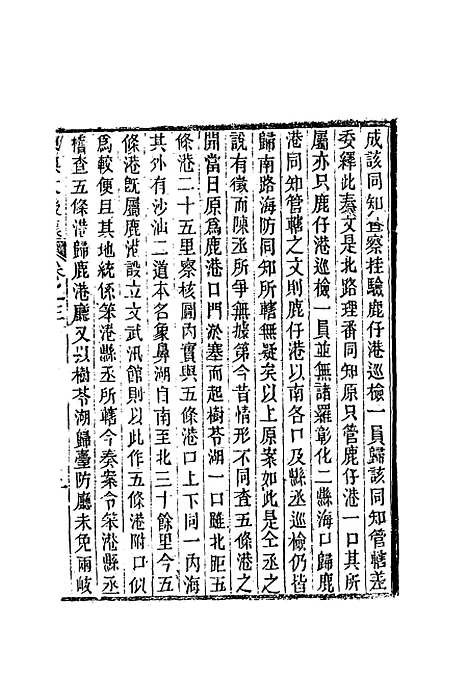 成該同知查察挂驗鹿仔港巡檢一員歸該同知管轄差
委釋此奏文是北路理番同知原只管鹿仔港一口其所
屬亦只鹿仔港巡檢一員並無諸羅彰化二縣海口歸鹿
港同知管轄之文則鹿仔港以南各口及縣丞巡檢仍皆
歸南路海防同知所轄無疑矣以上原案如此是仝丞之
說有徵而陳丞所爭無據第今昔情形不同査五條港之
開當日原爲鹿港口門淤塞而起樹苓湖一口雖北距五
條港二十五里察核圖內實與五條港口上下同一內海
其外有沙汕二道本名象鼻湖自南至北三十餘里今五
條港旣屬鹿港設立文武汛館則以此作五條港附口似
爲較便且其地統係笨港縣丞所轄今奏案令笨港縣丞
稽查五條港歸鹿港廳又以樹苓湖歸臺防廳未免兩歧
卷之三